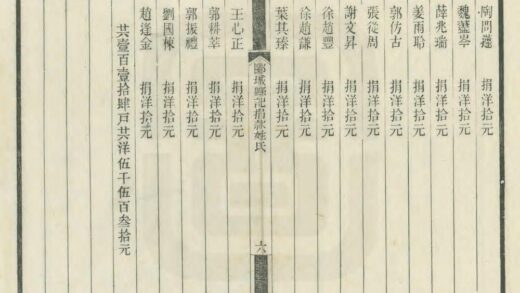 陶問蓬 捐洋拾元
魏 捐洋拾元
薛兆瑞 捐洋拾元
姜雨 捐洋拾元
郭仿古 捐洋拾元
張從周 捐洋拾元
謝文昇 捐洋拾元
徐趙豐 捐洋拾元
徐趙謙 捐洋拾元
葉其臻 捐洋拾元
郾城縣記捐款姓氏 六
王心正 捐洋拾元
郭耕莘 捐洋拾元
郭振禮 捐洋拾元
劉國棟 捐洋拾元
趙逢金 捐洋拾元
共壹百壹拾肆戸共洋伍千伍百叁拾元